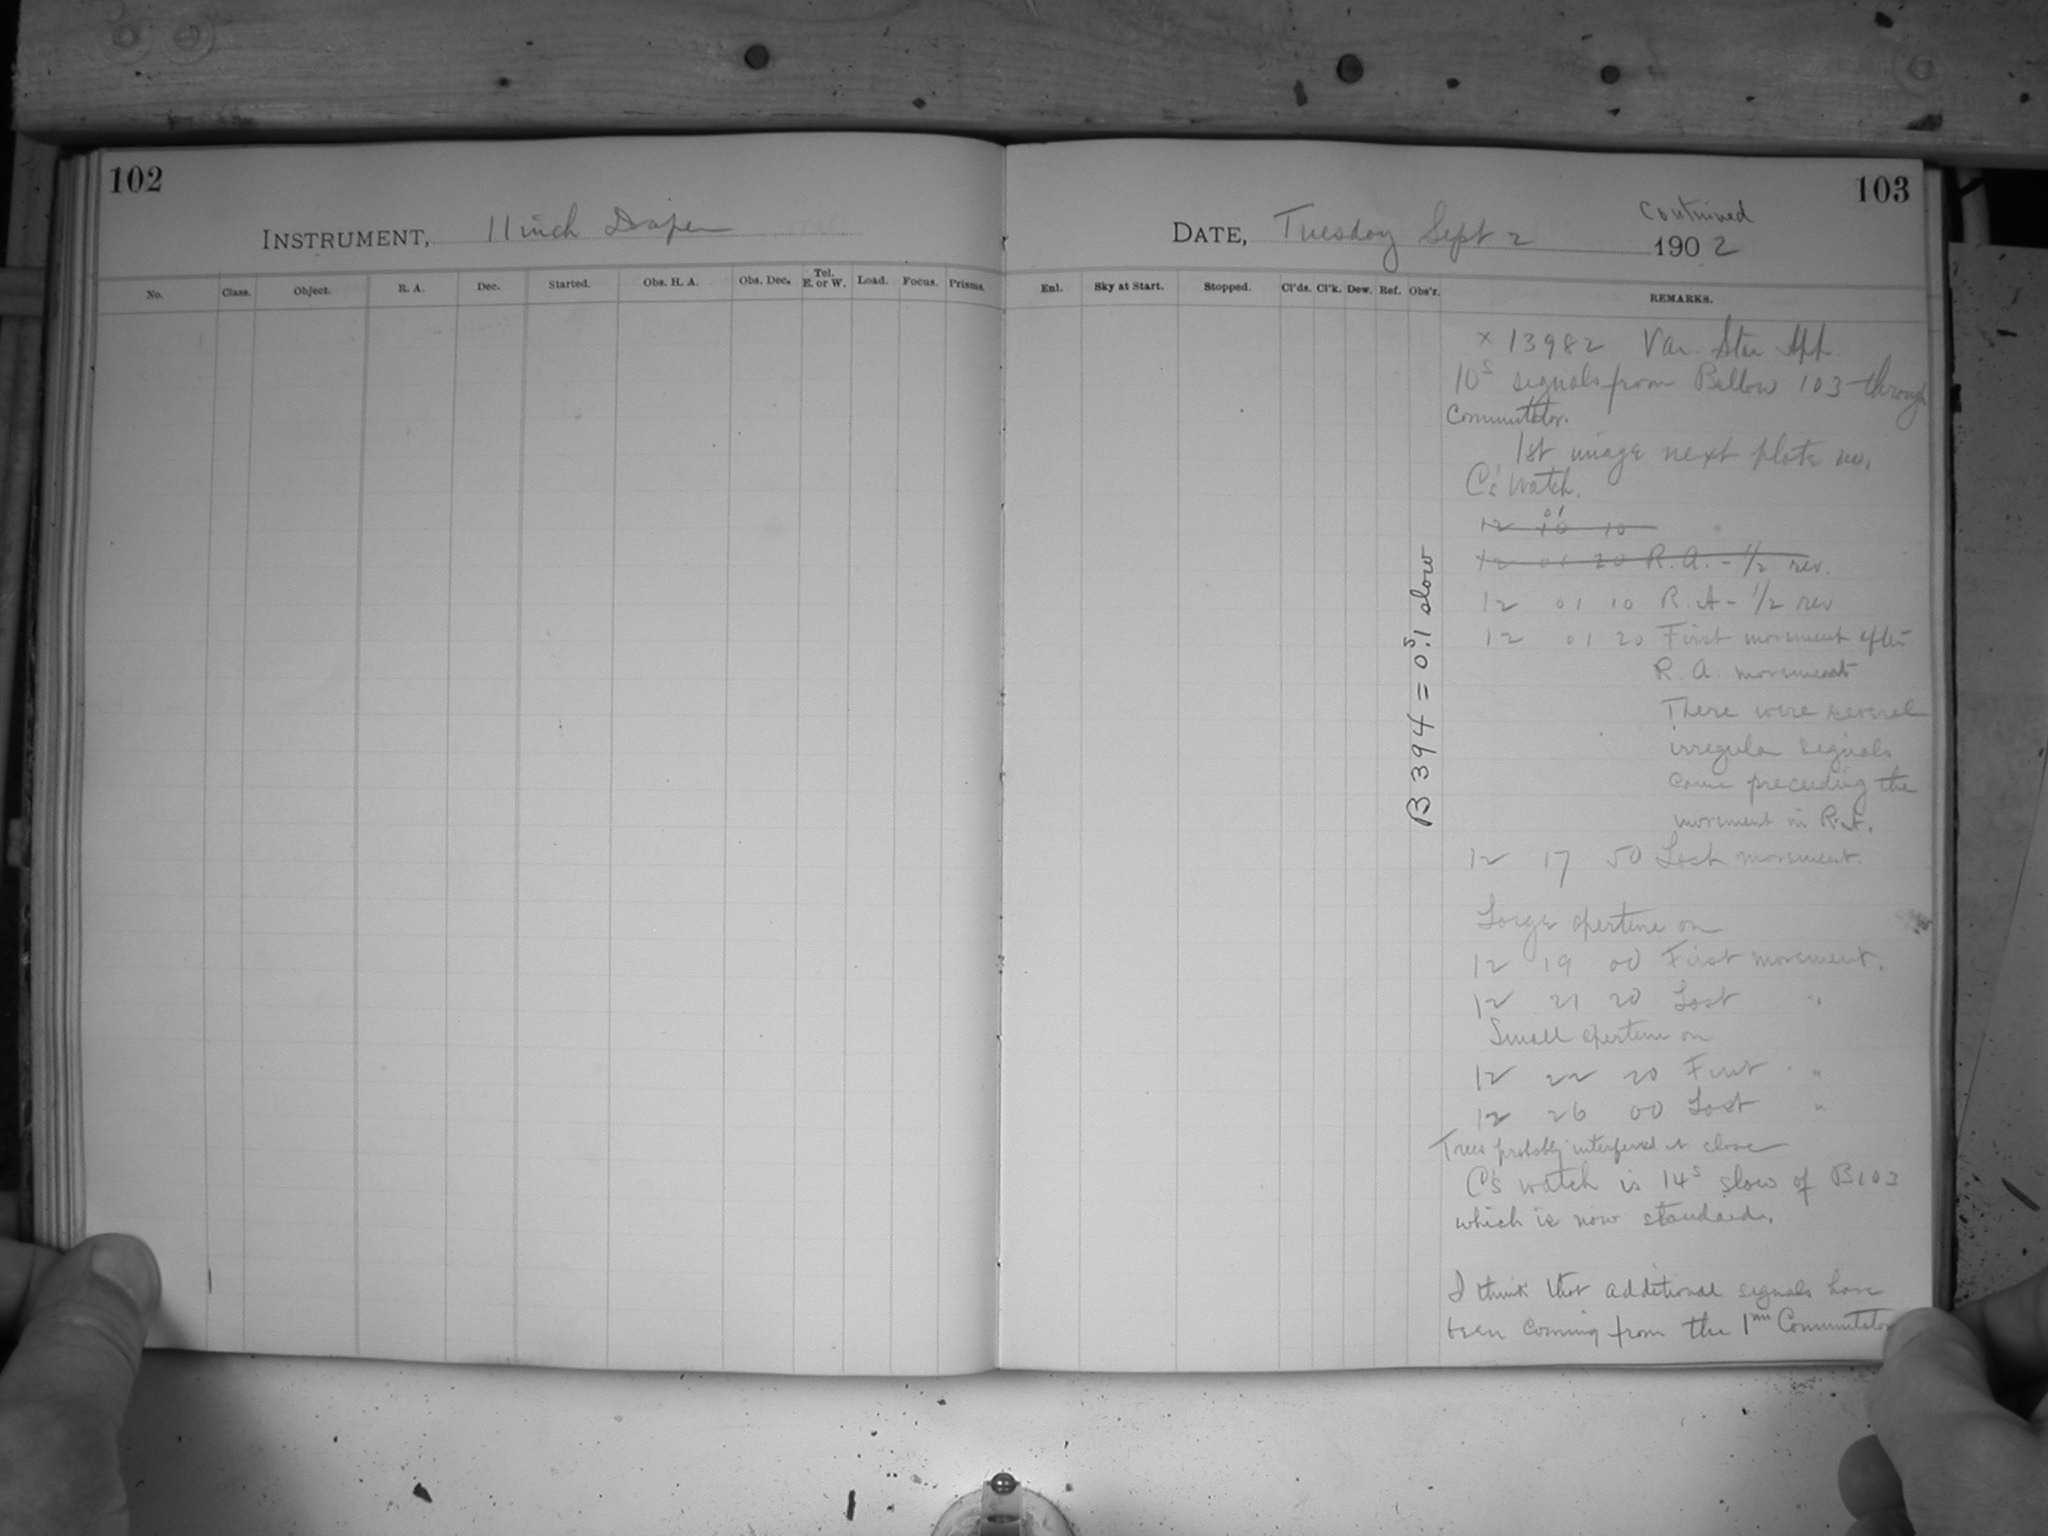 102
INSTRUMENT, 11 inch Draper
No. Class. Object. R. A. Dec. Started. Obs. H. A. Obs. Dec. Tel. E. or W. Load. Focus. Prisms.
103
continued
DATE, Tuesday Sept 2 1902
Enl. Sky at Start. Stopped. Cl'ds. Cl'k. Dew. Ref. Obs'r. REMARKS.
x 13982 Var. Star App.
10s signals from Bellow 103 through
Commutator.
1st image next plate no.
C's Watch.
01
12 10 10
12 01 20 R. A. - 1/2 rev.
12 01 10 R. A - 1/2 rev
12 01 20 First movement after
R. A. movement
There were several
irregular signals
came preceding the
movement in R. A.
12 17 50 Last movement.
Large aperture on
12 19 00 First movement.
12 21 20 Last "
Small aperture on
12 22 20 First "
12 26 00 Last "
Trees probably interfered at close
C's watch is 14s slow of B103
which is now standard.
I think that additional signals have
been coming from the 1m Commutator
B 394 = 0s.1 slow